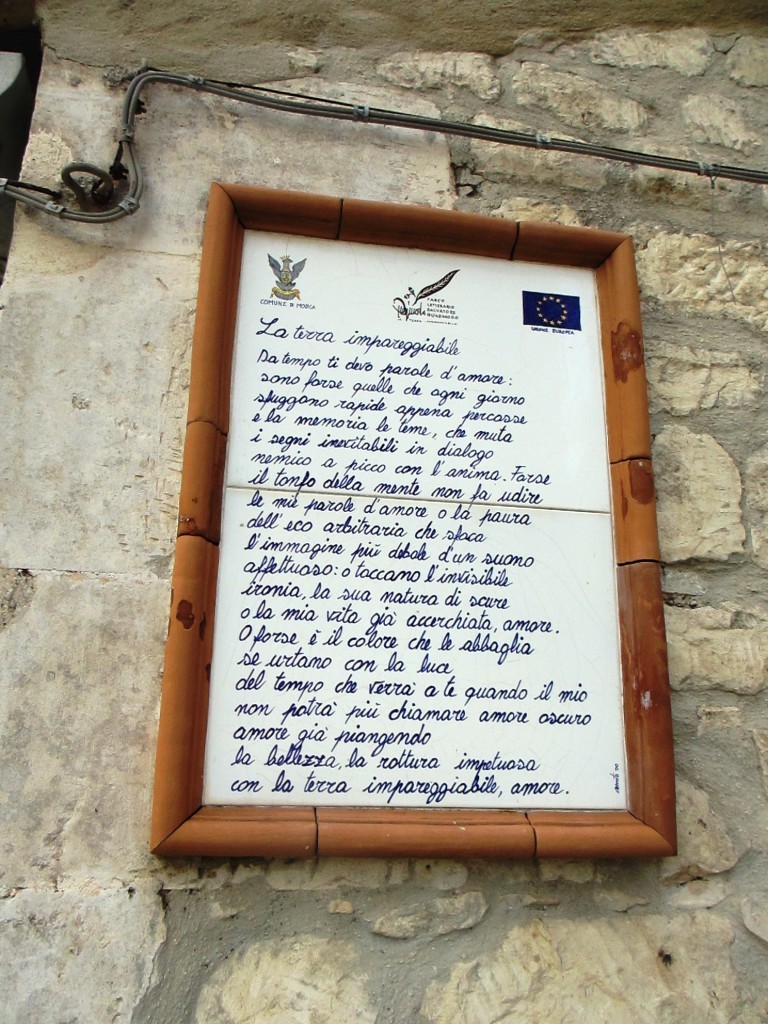 COMUNE DI MODICA
PARCO
LETTERARIO
SALVATORE
QUASIMODO
UNIONE EUROPEA
La terra impareggiabile
Da tempo ti devo parole d'amore:
sono forse quelle che ogni giorno
sfuggono rapide appena percosse
e la memoria le teme, che muta
i segni inevitabili in dialogo
nemico a picco con l'anima. Forse
il tonfo della mente non fa udire
le mie parole d'amore o la paura
dell'eco arbitraria che sfoca
l'immagine più debole d'un suono
affettuoso: o toccano l'invisibile
ironia, la sua natura di scure
o la mia vita già accerchiata, amore.
O forse è il colore che le abbaglia
se urtano con la luce
del tempo che verrà a te quando il mio
non potrà più chiamare amore oscuro
amore già piangendo
la bellezza, la rottura impetuosa
con la terra impareggiabile, amore.